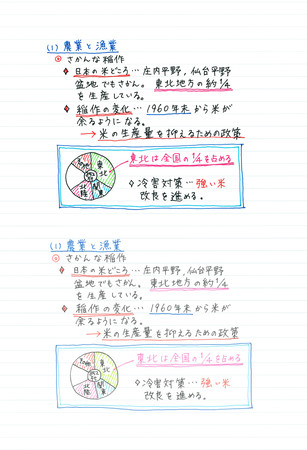 (1) 農業と漁業
◎ さかんな稲作
◆ 日本の米どころ… 庄内平野, 仙台平野
盆地でもさかん。 東北地方の約1/4
を生産している。
◆ 稲作の変化… 1960年末から米が
余るようになる。
→ 米の生産量を抑えるための政策
東北
関東
北陸
東北は全国の1/4を占める
◇冷害対策… 強い米
改良を進める。
(1) 農業と漁業
◎ さかんな稲作
◆ 日本の米どころ… 庄内平野, 仙台平野
盆地でもさかん。 東北地方の約1/4
を生産している。
◆ 稲作の変化… 1960年末から米が
余るようになる。
→ 米の生産量を抑えるための政策
東北
関東
北陸
東北は全国の1/4を占める
◇冷害対策… 強い米
改良を進める。